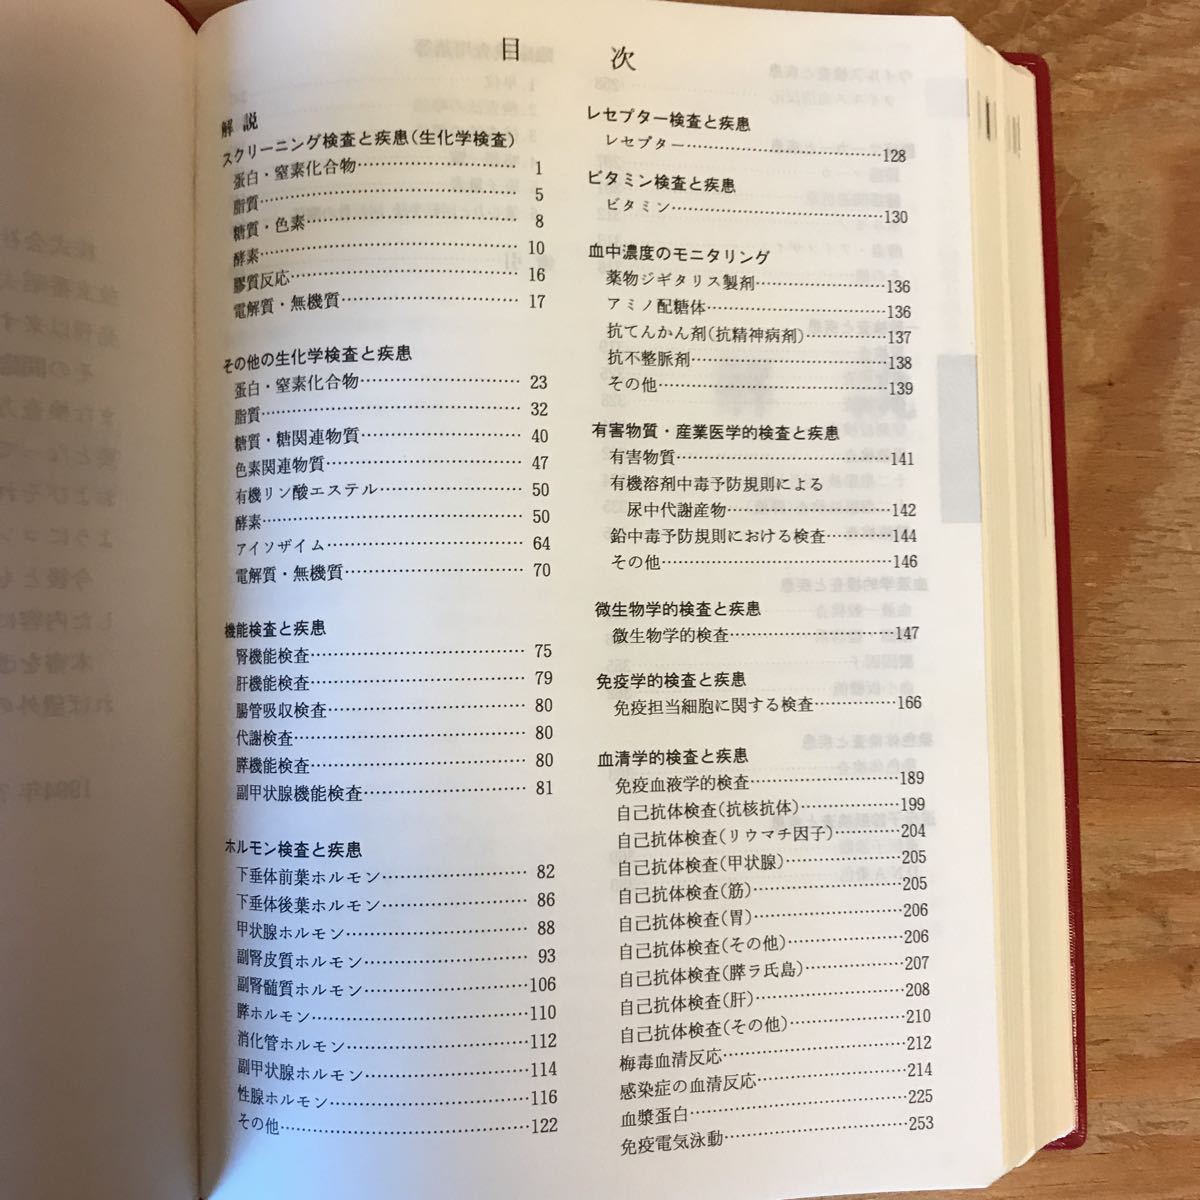 目次
解説
スクリーニング検査と疾患(生化学検査)
蛋白・窒素化合物……………………… 1
脂質……………………… 5
糖質・色素……………………… 8
酵素……………………… 10
膠質反応……………………… 16
電解質・無機質……………………… 17
その他の生化学検査と疾患
蛋白・窒素化合物……………………… 23
脂質……………………… 32
糖質・糖関連物質……………………… 40
色素関連物質……………………… 47
有機リン酸エステル……………………… 50
酵素……………………… 50
アイソザイム……………………… 64
電解質・無機質……………………… 70
機能検査と疾患
腎機能検査……………………… 75
肝機能検査……………………… 79
腸管吸収検査……………………… 80
代謝検査……………………… 80
膵機能検査……………………… 80
副甲状腺機能検査……………………… 81
ホルモン検査と疾患
下垂体前葉ホルモン……………………… 82
下垂体後葉ホルモン……………………… 86
甲状腺ホルモン……………………… 88
副腎皮質ホルモン……………………… 93
副腎髄質ホルモン………………………106
膵ホルモン………………………110
消化管ホルモン………………………112
副甲状腺ホルモン………………………114
性腺ホルモン………………………116
その他………………………122
レセプター検査と疾患
レセプター………………………128
ビタミン検査と疾患
ビタミン………………………130
血中濃度のモニタリング
薬物ジギタリス製剤………………………136
アミノ配糖体………………………136
抗てんかん剤(抗精神病剤)………………………137
抗不整脈剤………………………138
その他………………………139
有害物質・産業医学的検査と疾患
有害物質………………………141
有機溶剤中毒予防規則による
尿中代謝産物………………………142
鉛中毒予防規則における検査………………………144
その他………………………146
微生物学的検査と疾患
微生物学的検査………………………147
免疫学的検査と疾患
免疫担当細胞に関する検査………………………166
血清学的検査と疾患
免疫血液学的検査………………………189
自己抗体検査(抗核抗体)………………………199
自己抗体検査(リウマチ因子)………………………204
自己抗体検査(甲状腺)………………………205
自己抗体検査(筋)………………………205
自己抗体検査(胃)………………………206
自己抗体検査(その他)………………………206
自己抗体検査(膵ラ氏島)………………………207
自己抗体検査(肝)………………………208
自己抗体検査(その他)………………………210
梅毒血清反応………………………212
感染症の血清反応………………………214
血漿蛋白………………………225
免疫電気泳動………………………253